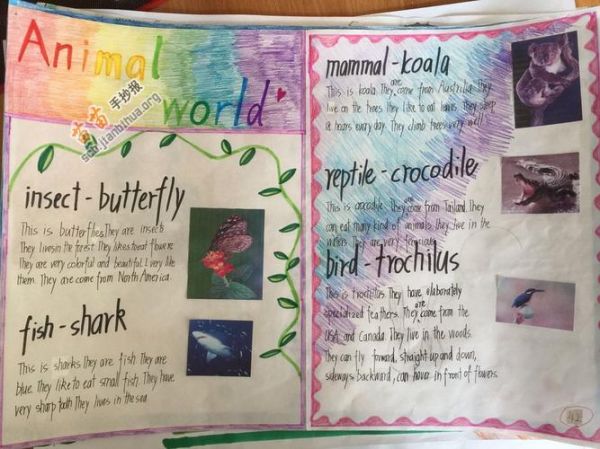 Animal
world
苗苗 手抄报
scb.jianbihua.org
insect-butterfly
This is butterflies They are insects
They lives in the forest They likes to eat flowers
They are very colorful and beautiful. I very like
them. They are come from North America.
fish-shark
This is sharks They are fish They are
blue. They like to eat small fish. They have
very sharp tooth They lives in the sea
mammal-koala
This is koala. They are come from Australia They
live on the trees They like to eat leaves. They sleep
hours every day. They climb trees very well
reptile-crocodile
This is crocodile. They are come from Tailand. They
can eat many kind of animals they live in the
They are very
bird-trochilus
This is trochilus They have elaborately
specialized feathers. They are come from the
USA and Canada They live in the woods.
They can fly forward, straight up and down,
sideways backwind, can hover in front of flowers.